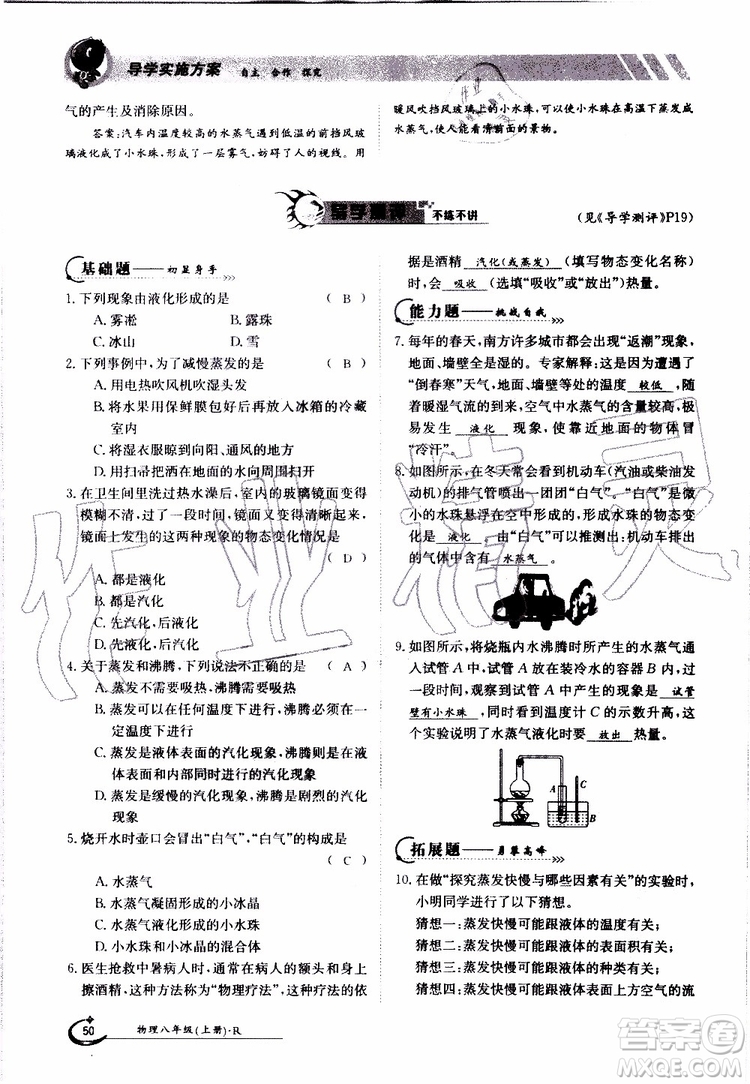 导学实施方案 自主 合作 探究
气的产生及消除原因。
答案:汽车内温度较高的水蒸气遇到低温的前挡风玻
璃液化成了小水珠,形成了一层雾气,妨碍了人的视线。用
暖风吹挡风玻璃上的小水珠,可以使小水珠在高温下蒸发成
水蒸气,使人能看清前面的景物。
导学测评 不练不讲
(见《导学测评》P19)
基础题——初显身手
1. 下列现象由液化形成的是 ( B )
A. 雾凇 B. 露珠
C. 冰山 D. 雪
2. 下列事例中,为了减慢蒸发的是 ( B )
A. 用电热吹风机吹湿头发
B. 将苹果用保鲜膜包好后放入冰箱的冷藏
室内
C. 将湿衣服晾到向阳、通风的地方
D. 用扫帚把洒在地面的水向周围扫开
3. 在卫生间里洗过热水澡后,室内的玻璃镜面变得
模糊不清,过了一段时间,镜面又变得清晰起来,
镜面上发生的这两种现象的物态变化情况是
( D )
A. 都是液化
B. 都是汽化
C. 先汽化,后液化
D. 先液化,后汽化
4. 关于蒸发和沸腾,下列说法不正确的是 ( A )
A. 蒸发不需要吸热,沸腾需要吸热
B. 蒸发可以在任何温度下发生,沸腾必须在
一定温度下发生
C. 蒸发是液体表面的汽化现象,沸腾是液体
表面和内部同时进行的汽化现象
D. 蒸发是缓慢的汽化现象,沸腾是剧烈的汽
化现象
5. 烧开水时壶口会冒出“白气”,“白气”的构成是
( C )
A. 水蒸气
B. 水蒸气凝固形成的小冰晶
C. 水蒸气液化形成的小水珠
D. 小水珠和小冰晶的混合体
6. 医生抢救中暑病人时,通常在病人的额头和身上
擦酒精,这种方法称为“物理疗法”,这样做的依
据是酒精 汽化(或蒸发) (填写物态变化名称)
时,会 吸收 (选填“吸收”或“放出”)热量。
能力题——挑战自我
7. 每年的春天,南方许多城市都会出现“返潮”现象,
地面、墙壁全是湿的。专家解释:这是因为遭遇了
“倒春寒”天气,地面、墙壁等处的温度 较低 ,
随着暖湿气流的到来,空气中水蒸气的含量较高,极
易发生 液化 现象,使靠近地面的物体冒
“冷汗”。
8. 如图所示,在冬天常会看到机动车(汽油或柴油发
动机)的排气管喷出一团团“白气”,“白气”是微
小的水珠悬浮在空中形成的,形成水珠的物态变
化是 液化 。由“白气”可以推测出:机动车排出
的气体中含有 水蒸气 。
9. 如图所示,将烧瓶内水沸腾时所产生的水蒸气通
入试管 A 中,试管 A 放在装冷水的容器 B 内,过
一段时间,观察到试管 A 中产生的现象是 试管
壁有小水珠 ,同时看到温度计 C 的示数升高,这
个实验说明了水蒸气液化时要 放出 热量。
A C B
拓展题——勇攀高峰
10. 在做“探究蒸发快慢与哪些因素有关”的实验时,
小明同学进行了以下猜想。
猜想一:蒸发快慢可能跟液体的温度有关;
猜想二:蒸发快慢可能跟液体的表面积有关;
猜想三:蒸发快慢可能跟液体的种类有关;
猜想四:蒸发快慢可能跟液体表面上空气的流
50 物理八年级(上册)·R
作业精灵
答案圈
MXQE.COM